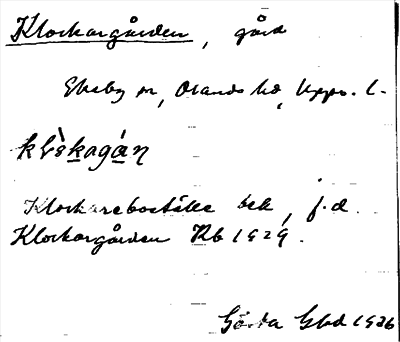 Klockargården, gård
Ekeby sn, Olands hd, Upps. l.
Klockareboställe bek, f.d.
Klockargården Rb 1929.
Gösta Gbd 1936